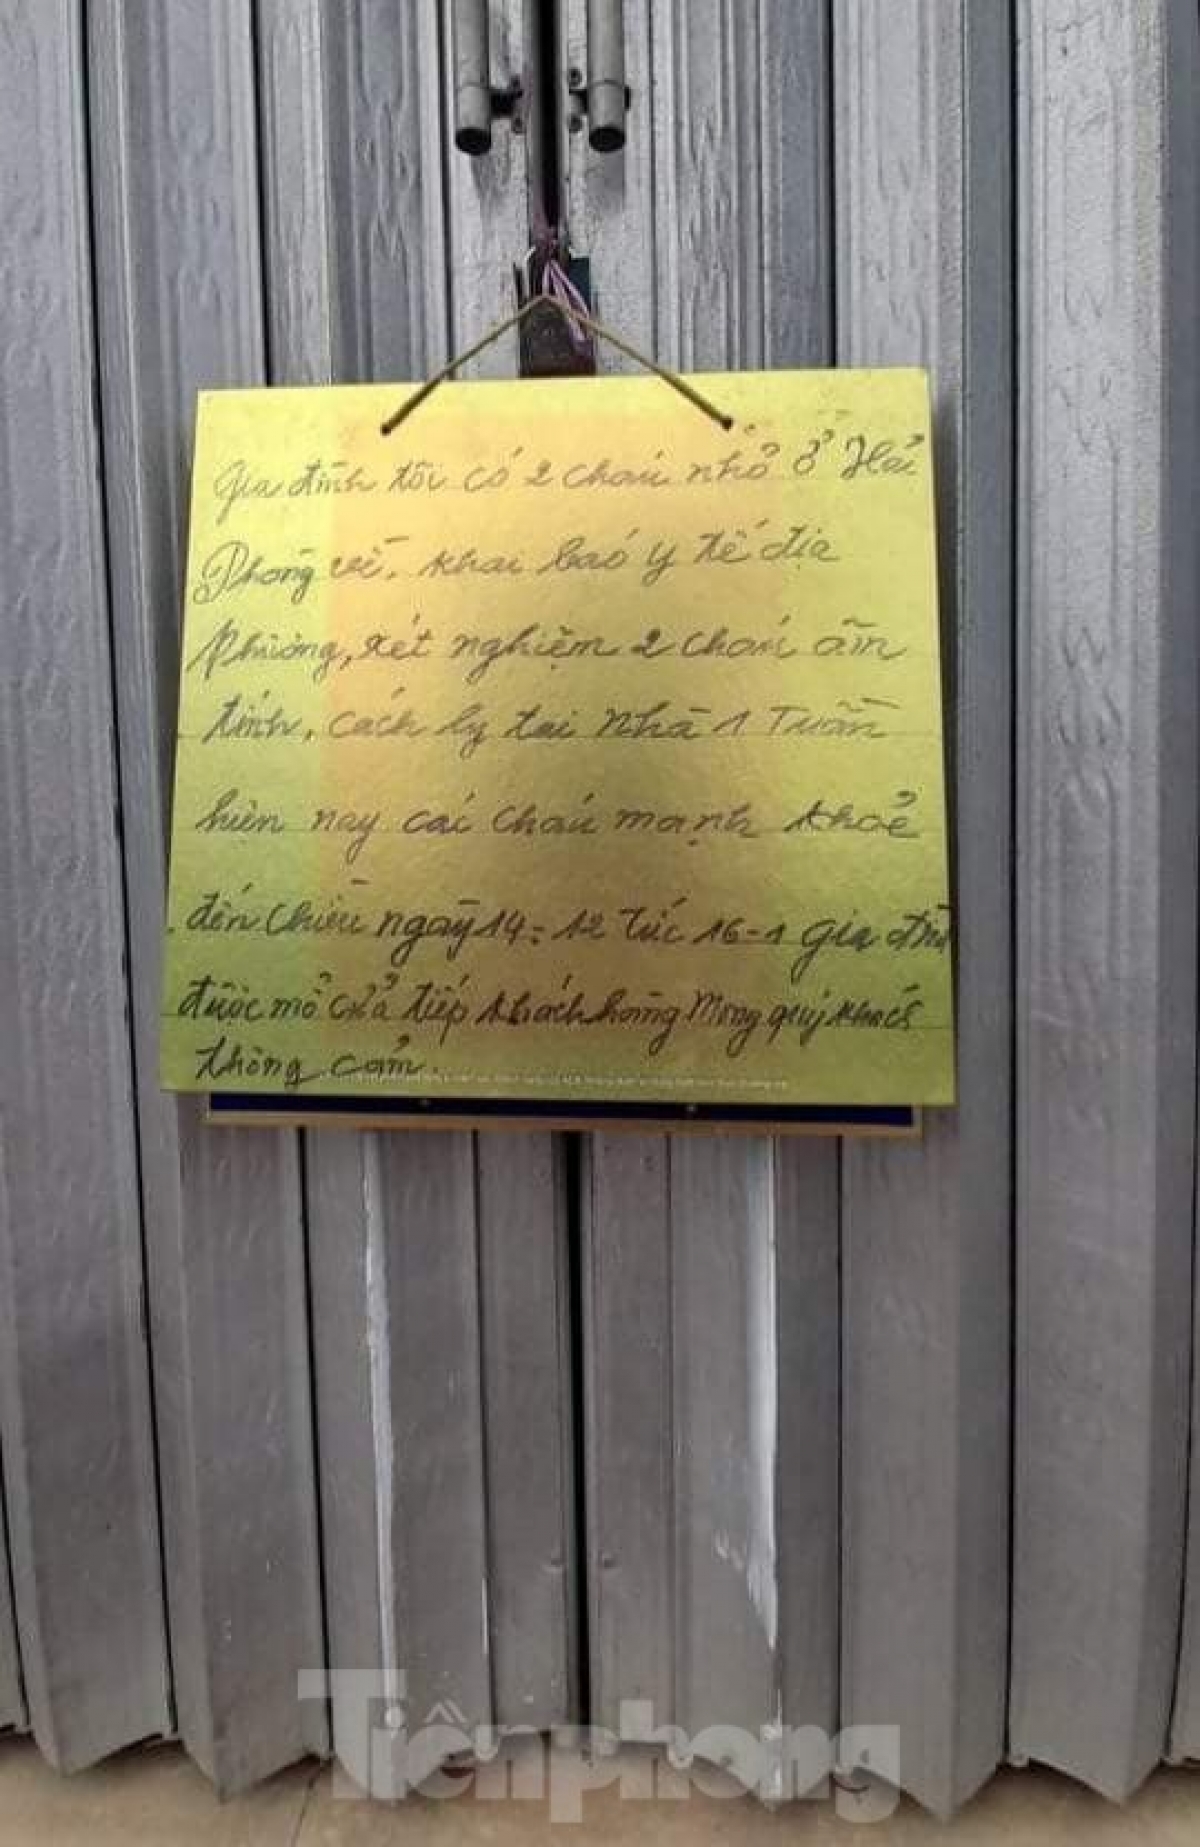 Gia đình tôi có 2 cháu nhỏ ở Hải
Phòng về, khai báo y tế địa
phương, xét nghiệm 2 cháu âm
tính, cách ly tại nhà 1 Tuần
hiện nay các cháu mạnh khoẻ
đến chiều ngày 14-12 tức 16-1 gia đình
được mở cửa tiếp khách hàng Mong quý khách
thông cảm.
Tiền phong